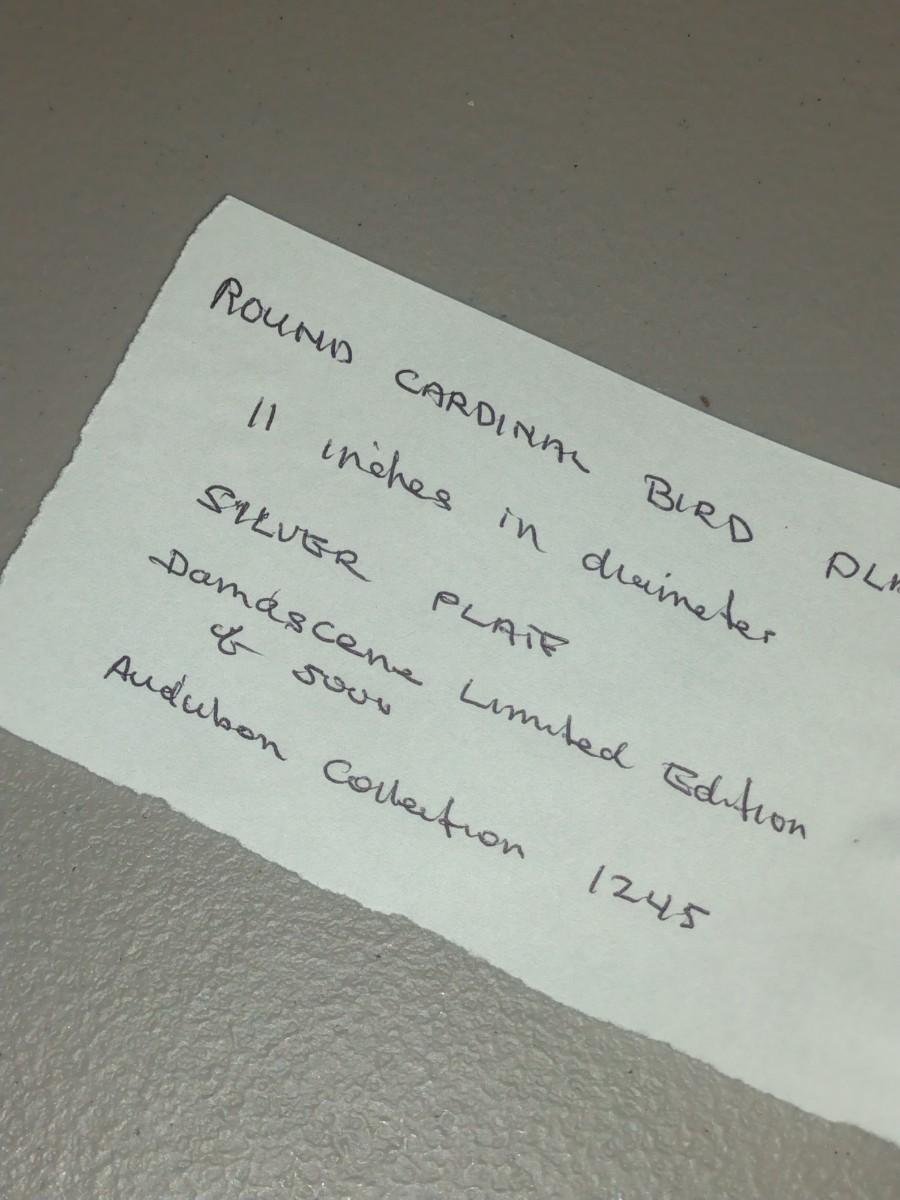 ROUND CARDINAL BIRD PLA
11 inches in diaimeter
SILVER PLATE
Damascene Limited Edition
of 5000
Audubon Collection 1245